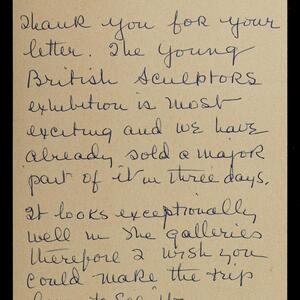 Thank you for your
letter. The Young
British Sculptors
exhibition is most
exciting and we have
already sold a major
part of it in three days.
It looks exceptionally
well in the galleries
therefore I wish you
could make the trip